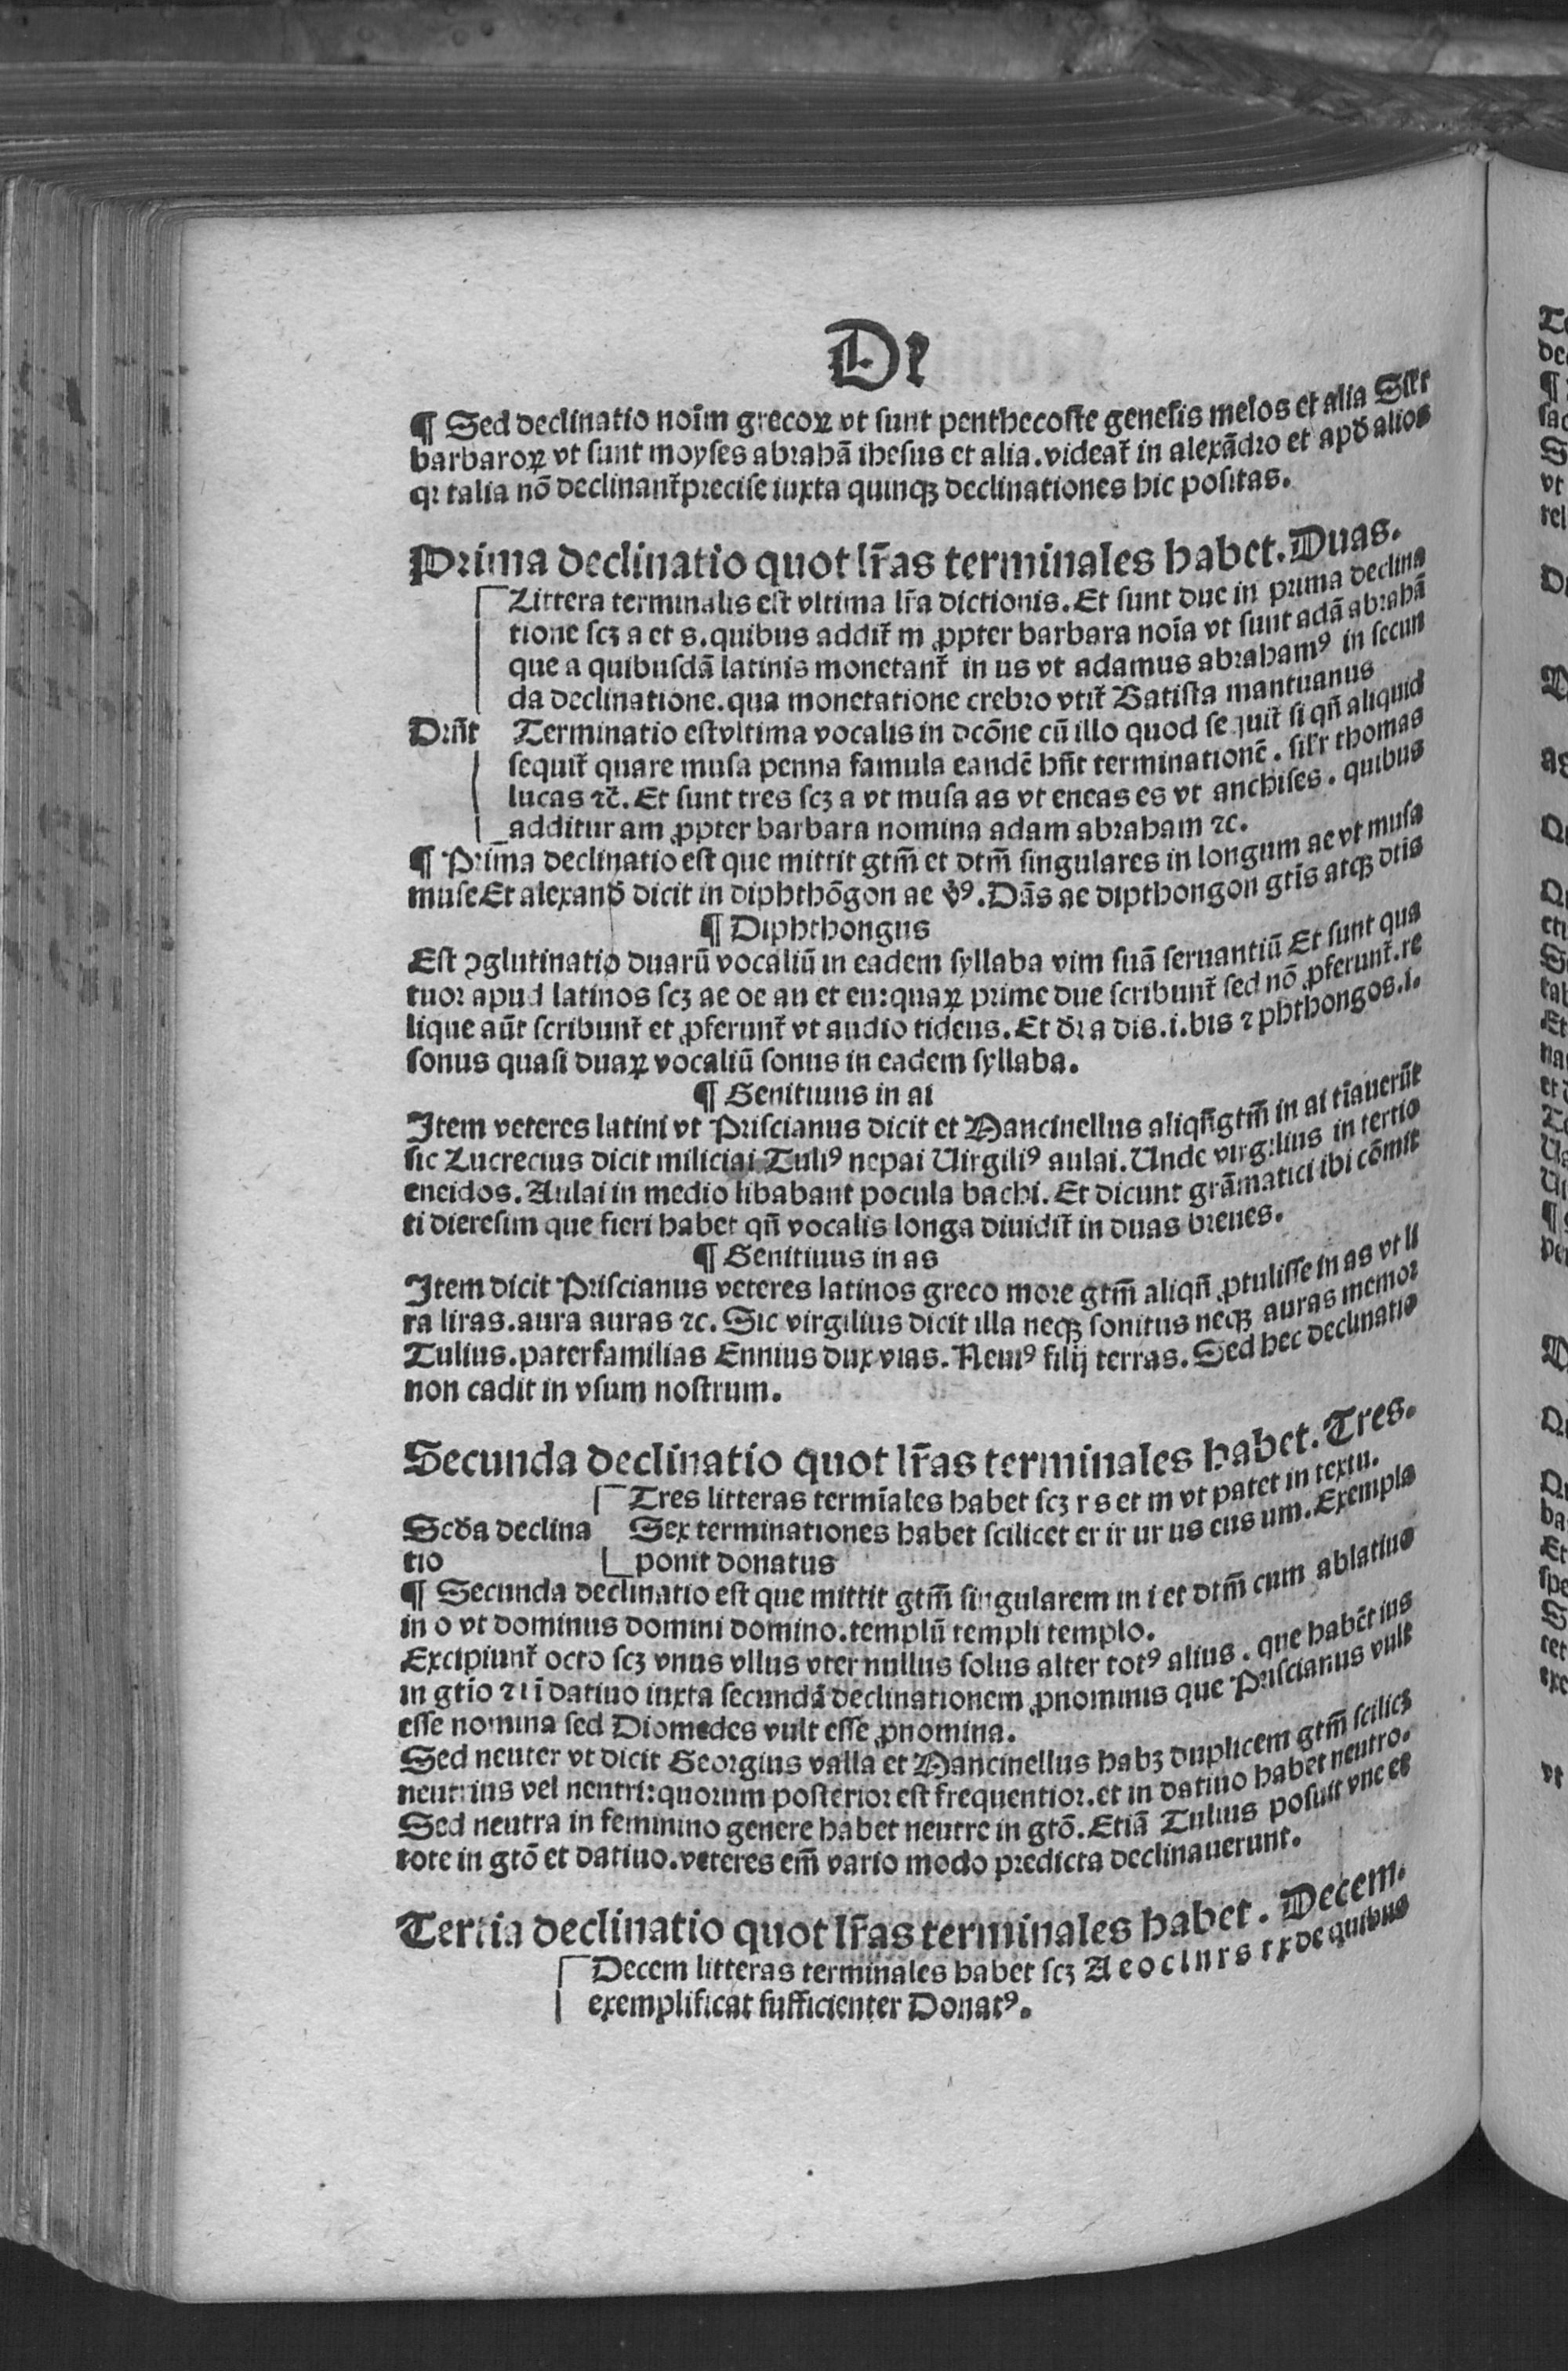 De
¶ Sed declinatio noīm grecoꝝ vt sunt penthecoste genesis melos et alia Silr
barbaroꝝ vt sunt moyses abrahā ihesus et alia. videat᷑ in alexādro et apđ alios
qꝛ talia nō declinant᷑ precise iuxta quinqꝫ declinationes hic positas.
Prima declinatio quot lr̄as terminales habet. Duas.
Littera terminalis est vltima lr̄a dictionis. Et sunt due in prima declina
tione scꝫ a et s. quibus addit᷑ m ꝓpter barbara noīa vt sunt adā abrahā
que a quibusdā latinis monetant᷑ in us vt adamus abrahamꝰ in secun
da declinatione. qua monetatione crebro vtit᷑ Batista mantuanus
Drn̄t Terminatio est vltima vocalis in dcōne cū illo quod sequit᷑ si qn̄ aliquid
sequit᷑ quare musa penna famula eandē hn̄t terminationē. silr thomas
lucas ⁊c̄. Et sunt tres scꝫ a vt musa as vt eneas es vt anchises. quibus
additur am ꝓpter barbara nomina adam abraham ⁊c.
¶ Prima declinatio est que mittit gtm̄ et dtm̄ singulares in longum ae vt musa
muse Et alexand dicit in diphthōgon ae ꝟꝰ. Dās ae dipthongon gtīs atqꝫ dtis
¶ Diphthongus
Est ꝯglutinatio duarū vocaliū in eadem syllaba vim suā seruantiū Et sunt qua
tuor apud latinos scꝫ ae oe au et eu: quaꝝ prime due scribunt᷑ sed nō ꝓferunt᷑. re
lique aūt scribunt᷑ et ꝓferunt᷑ vt audio tideus. Et dr̄ a dis .i. bis ⁊ phthongos .i.
sonus quasi duaꝝ vocaliū sonus in eadem syllaba.
¶ Genitiuus in ai
Item veteres latini vt Priscianus dicit et Mancinellus aliqn̄ gtm̄ in ai tīauerūt
sic Lucrecius dicit miliciai Tuliꝰ nepai Uirgiliꝰ aulai. Unde virgilius in tertio
eneidos. Aulai in medio libabant pocula bachi. Et dicunt grāmatici ibi cōmit
ti dieresim que fieri habet qn̄ vocalis longa diuidit᷑ in duas breues.
¶ Genitiuus in as
Item dicit Priscianus veteres latinos greco more gtm̄ aliqn̄ ꝓtulisse in as vt li
ra liras. aura auras ⁊c. Sic virgilius dicit illa neqꝫ sonitus neqꝫ auras memor
Tulius. paterfamilias Ennius dux vias. Neuiꝰ filij terras. Sed hec declinatio
non cadit in vsum nostrum.
Secunda declinatio quot lr̄as terminales habet. Tres.
Tres litteras termīales habet scꝫ r s et m vt patet in textu.
Scđa declina Sex terminationes habet scilicet er ir ur us eus um. Exempla
tio ponit donatus
¶ Secunda declinatio est que mittit gtm̄ singularem in i et dtm̄ cum ablatiuo
in o vt dominus domini domino. templū templi templo.
Excipiunt᷑ octo scꝫ vnus vllus vter nullus solus alter totꝰ alius. que habēt ius
in gtīo ⁊ i ī datiuo iuxta secundā declinationem ꝓnominis que Priscianus vult
esse nomina sed Diomedes vult esse ꝓnomina.
Sed neuter vt dicit Georgius valla et Mancinellus habꝫ duplicem gtm̄ scilicꝫ
neutrius vel neutri: quorum posterior est frequentior. et in datiuo habet neutro.
Sed neutra in feminino genere habet neutre in gtō. Etiā Tulius posuit vne et
tote in gtō et datiuo. veteres em̄ vario modo predicta declinauerunt.
Tertia declinatio quot lr̄as terminales habet. Decem.
Decem litteras terminales habet scꝫ A e o c l n r s t x de quibus
exemplificat sufficienter Donatꝰ.